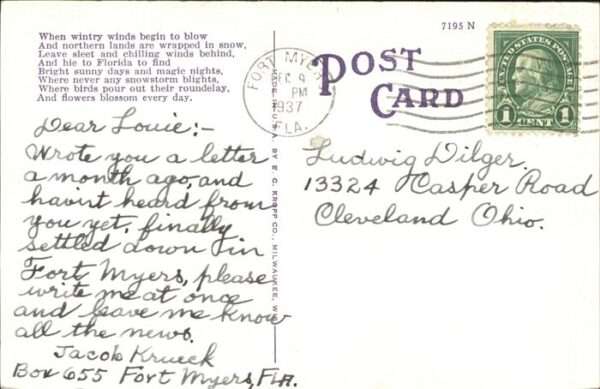 When wintry winds begin to blow
And northern lands are wrapped in snow,
Leave sleet and chilling winds behind,
And hie to Florida to find
Bright sunny days and magic nights,
Where never any snowstorm blights,
Where birds pour out their roundelay,
And flowers blossom every day.
7195 N
POST
CARD
FORT MYERS
DEC 9
PM
1937
FLA.
UNITED STATES POSTAGE
1 CENT 1
MADE IN U.S.A. BY E. C. KROPP CO., MILWAUKEE, W
Dear Louie:-
Wrote you a letter
a month ago, and
havint heard from
you yet, finally
settled down in
Fort Myers, please
write me at once
and leave me know
all the news.
Jacob Krueck
Box 655 Fort Myers, Fla.
Ludwig Dilger.
13324 Casper Road
Cleveland Ohio.